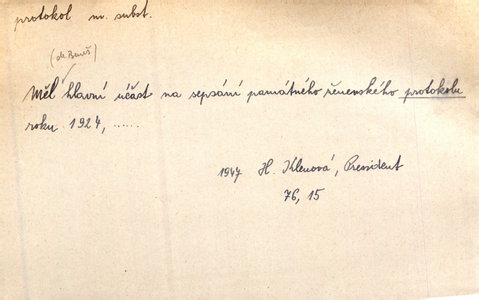 protokol m. subst.
(dr. Beneš)
Měl hlavní účast na sepsání památného ženevského protokolu
roku 1924, ......
1947 H. Klenová, President
76, 15